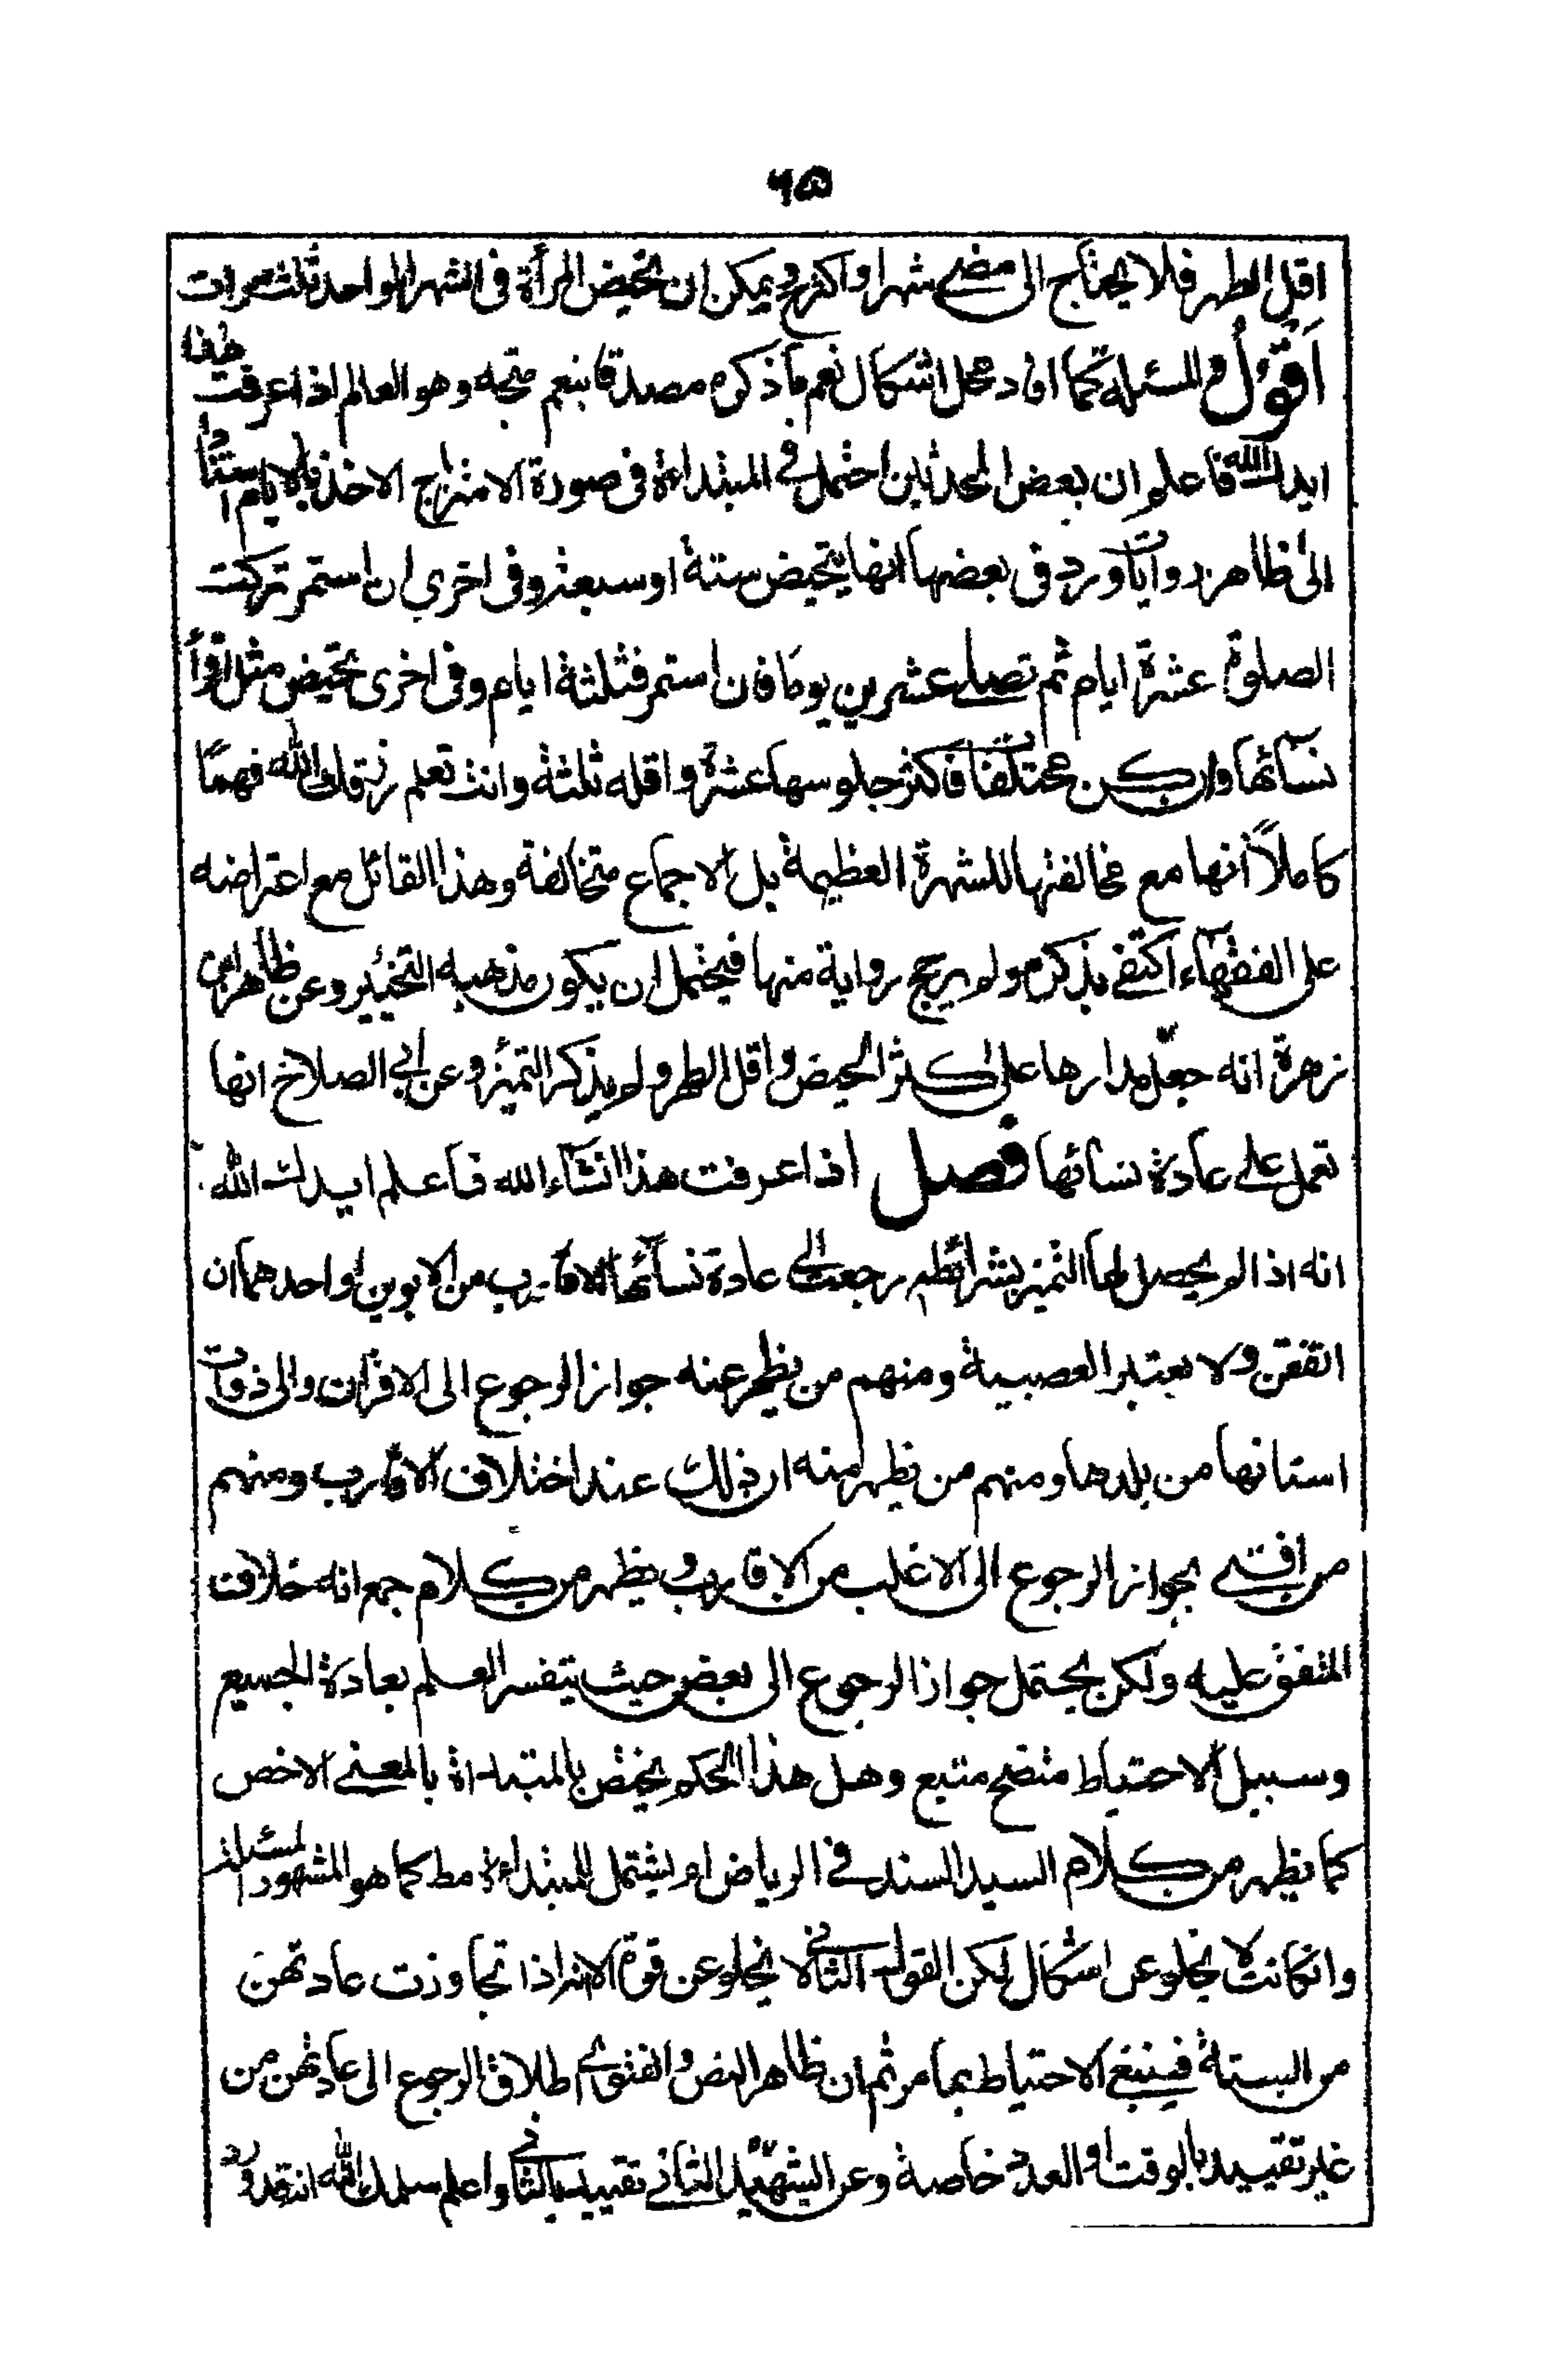 ٦٥
اقل الطهر فلا يحتاج الى مضى شهر او اكثر وح يمكن ان تحيض المرأة فى الشهر الواحد ثلث مرات
اَقُوْلُ والمسئلة كما افاد محل اشكال نعم ما ذكره متجه وهو العالم اذا عرفت هذا
ايدك الله فاعلم ان بعض المحدثين احتمل فى المبتداءة فى صورة الامتزاج الاخذ بالايام استنادا
الى ظاهر روايات ورد فى بعضها انها تتحيض ستة او سبعة وفى اخرى ان استمر تركت
الصلوة عشرة ايام ثم تصلى عشرين يوما فان استمر فثلثة ايام وفى اخرى تحيض مثل اقراء
نسائها وان كن مختلفات فاكثر جلوسها عشرة واقله ثلثة وانت تعلم رزقك الله فهمًا
كاملاً انها مع مخالفتها للشهرة العظيمة بل الاجماع متخالفة وهذا القائل مع اعتراضه
على الفقهاء اكتفى بذكره ولم يرجح رواية منها فيحتمل ان يكون مذهبه التخيير وعن ظاهر ابن
زهرة انه جعل مدارها على اكثر الحيض واقل الطهر ولم يذكر التميز وعن ابى الصلاح انها
تعمل على عادة نسائها فصل اذا عرفت هذا انشاء الله فاعلم ايدك الله
انه اذا لم يحصل لها التميز بشرائطه رجعت الى عادة نسائها الاقارب من الابوين او احدهما ان
اتفقن ولا يعتبر العصبية ومنهم من يظهر عنه جواز الرجوع الى الاقران والى ذوات
اسنانها من بلدها ومنهم من يظهر منه ان ذلك عند اختلاف الاقارب ومنهم
من افتى بجواز الرجوع الى الاغلب من الاقارب ويظهر من كلام جمع انه خلاف
المتفق عليه ولكن يحتمل جواز الرجوع الى بعض حيث يتعسر العلم بعادة الجميع
وسبيل الاحتياط متضح متبع وهل هذا الحكم يختص بالمبتداة بالمعنى الاخص
كما يظهر من كلام السيد السند فى الرياض او يشتمل للمبتداءة مط كما هو المشهور المسئلة
وانكانت لا يخلو عن اشكال لكن القول الثانى لا يخلو عن قوة الا اذا تجاوزت عادتهن
من الستة فينبغى الاحتياط بما مر ثم ان ظاهر النص والفتوى اطلاق الرجوع الى عادتهن من
غير تقييد بالوقت او العدد خاصة وعن الشهيد الثانى تقييده بالثانى واعلم سلمك الله انه قد ورد